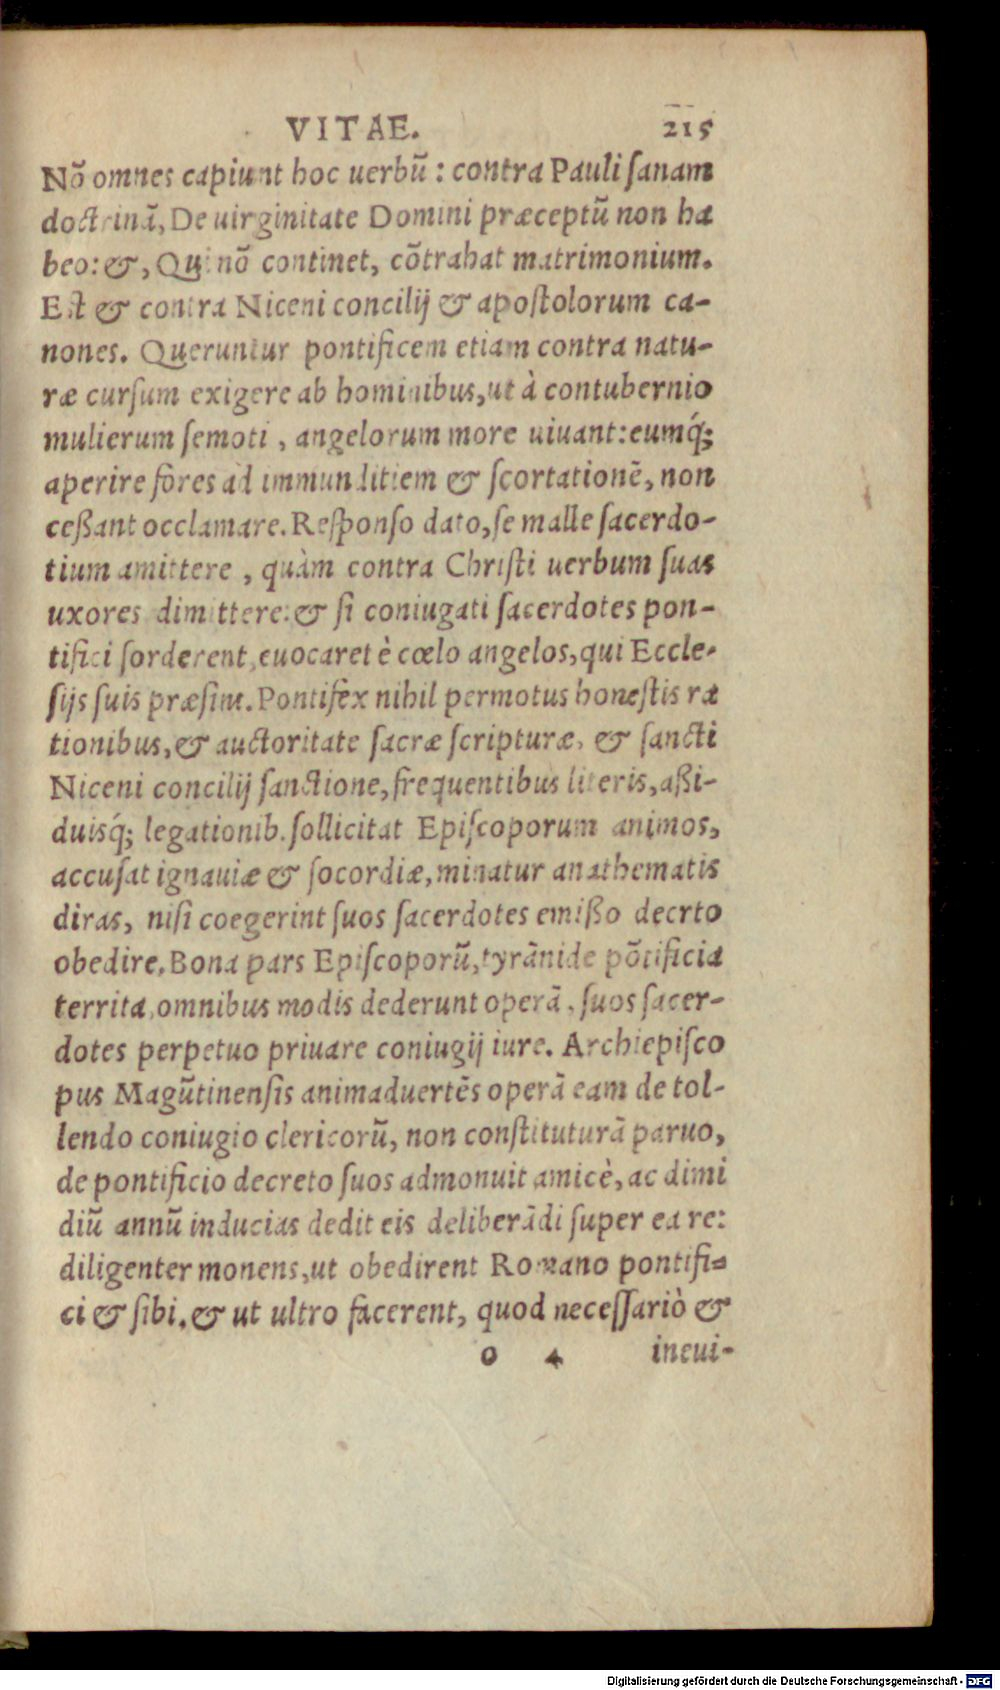 VITAE. 215
Nõ omnes capiunt hoc uerbũ : contra Pauli ſanam
doctrinã, De uirginitate Domini præceptũ non ha
beo: &, Qui nõ continet, cõtrahat matrimonium.
Eſt & contra Niceni concilij & apoſtolorum ca-
nones. Queruntur pontificem etiam contra natu-
ræ curſum exigere ab hominibus, ut à contubernio
mulierum ſemoti , angelorum more uiuant: eumq́;
aperire fores ad immunditiem & ſcortationẽ, non
ceßant occlamare. Reſponſo dato, ſe malle ſacerdo-
tium amittere , quàm contra Chriſti uerbum ſuas
uxores dimittere: & ſi coniugati ſacerdotes pon-
tifici ſorderent, euocaret è cœlo angelos, qui Eccle-
ſijs ſuis præſint. Pontifex nihil permotus honeſtis ra
tionibus, & auctoritate ſacræ ſcripturæ, & ſancti
Niceni concilij ſanctione, frequentibus literis, aßi-
duisq́; legationib. ſollicitat Epiſcoporum animos,
accuſat ignauiæ & ſocordiæ, minatur anathematis
diras, niſi coegerint ſuos ſacerdotes emißo decrto
obedire. Bona pars Epiſcoporũ, tyrãnide põtificia
territa, omnibus modis dederunt operã, ſuos ſacer-
dotes perpetuo priuare coniugij iure. Archiepiſco
pus Magũtinenſis animaduertẽs operã eam de tol-
lendo coniugio clericorũ, non conſtituturã paruo,
de pontificio decreto ſuos admonuit amicè, ac dimi
diũ annũ inducias dedit eis deliberãdi ſuper ea re:
diligenter monens, ut obedirent Romano pontifi-
ci & ſibi. & ut ultro facerent, quod neceſſariò &
o 4 ineui-
Digitalisierung gefördert durch die Deutsche Forschungsgemeinschaft - DFG